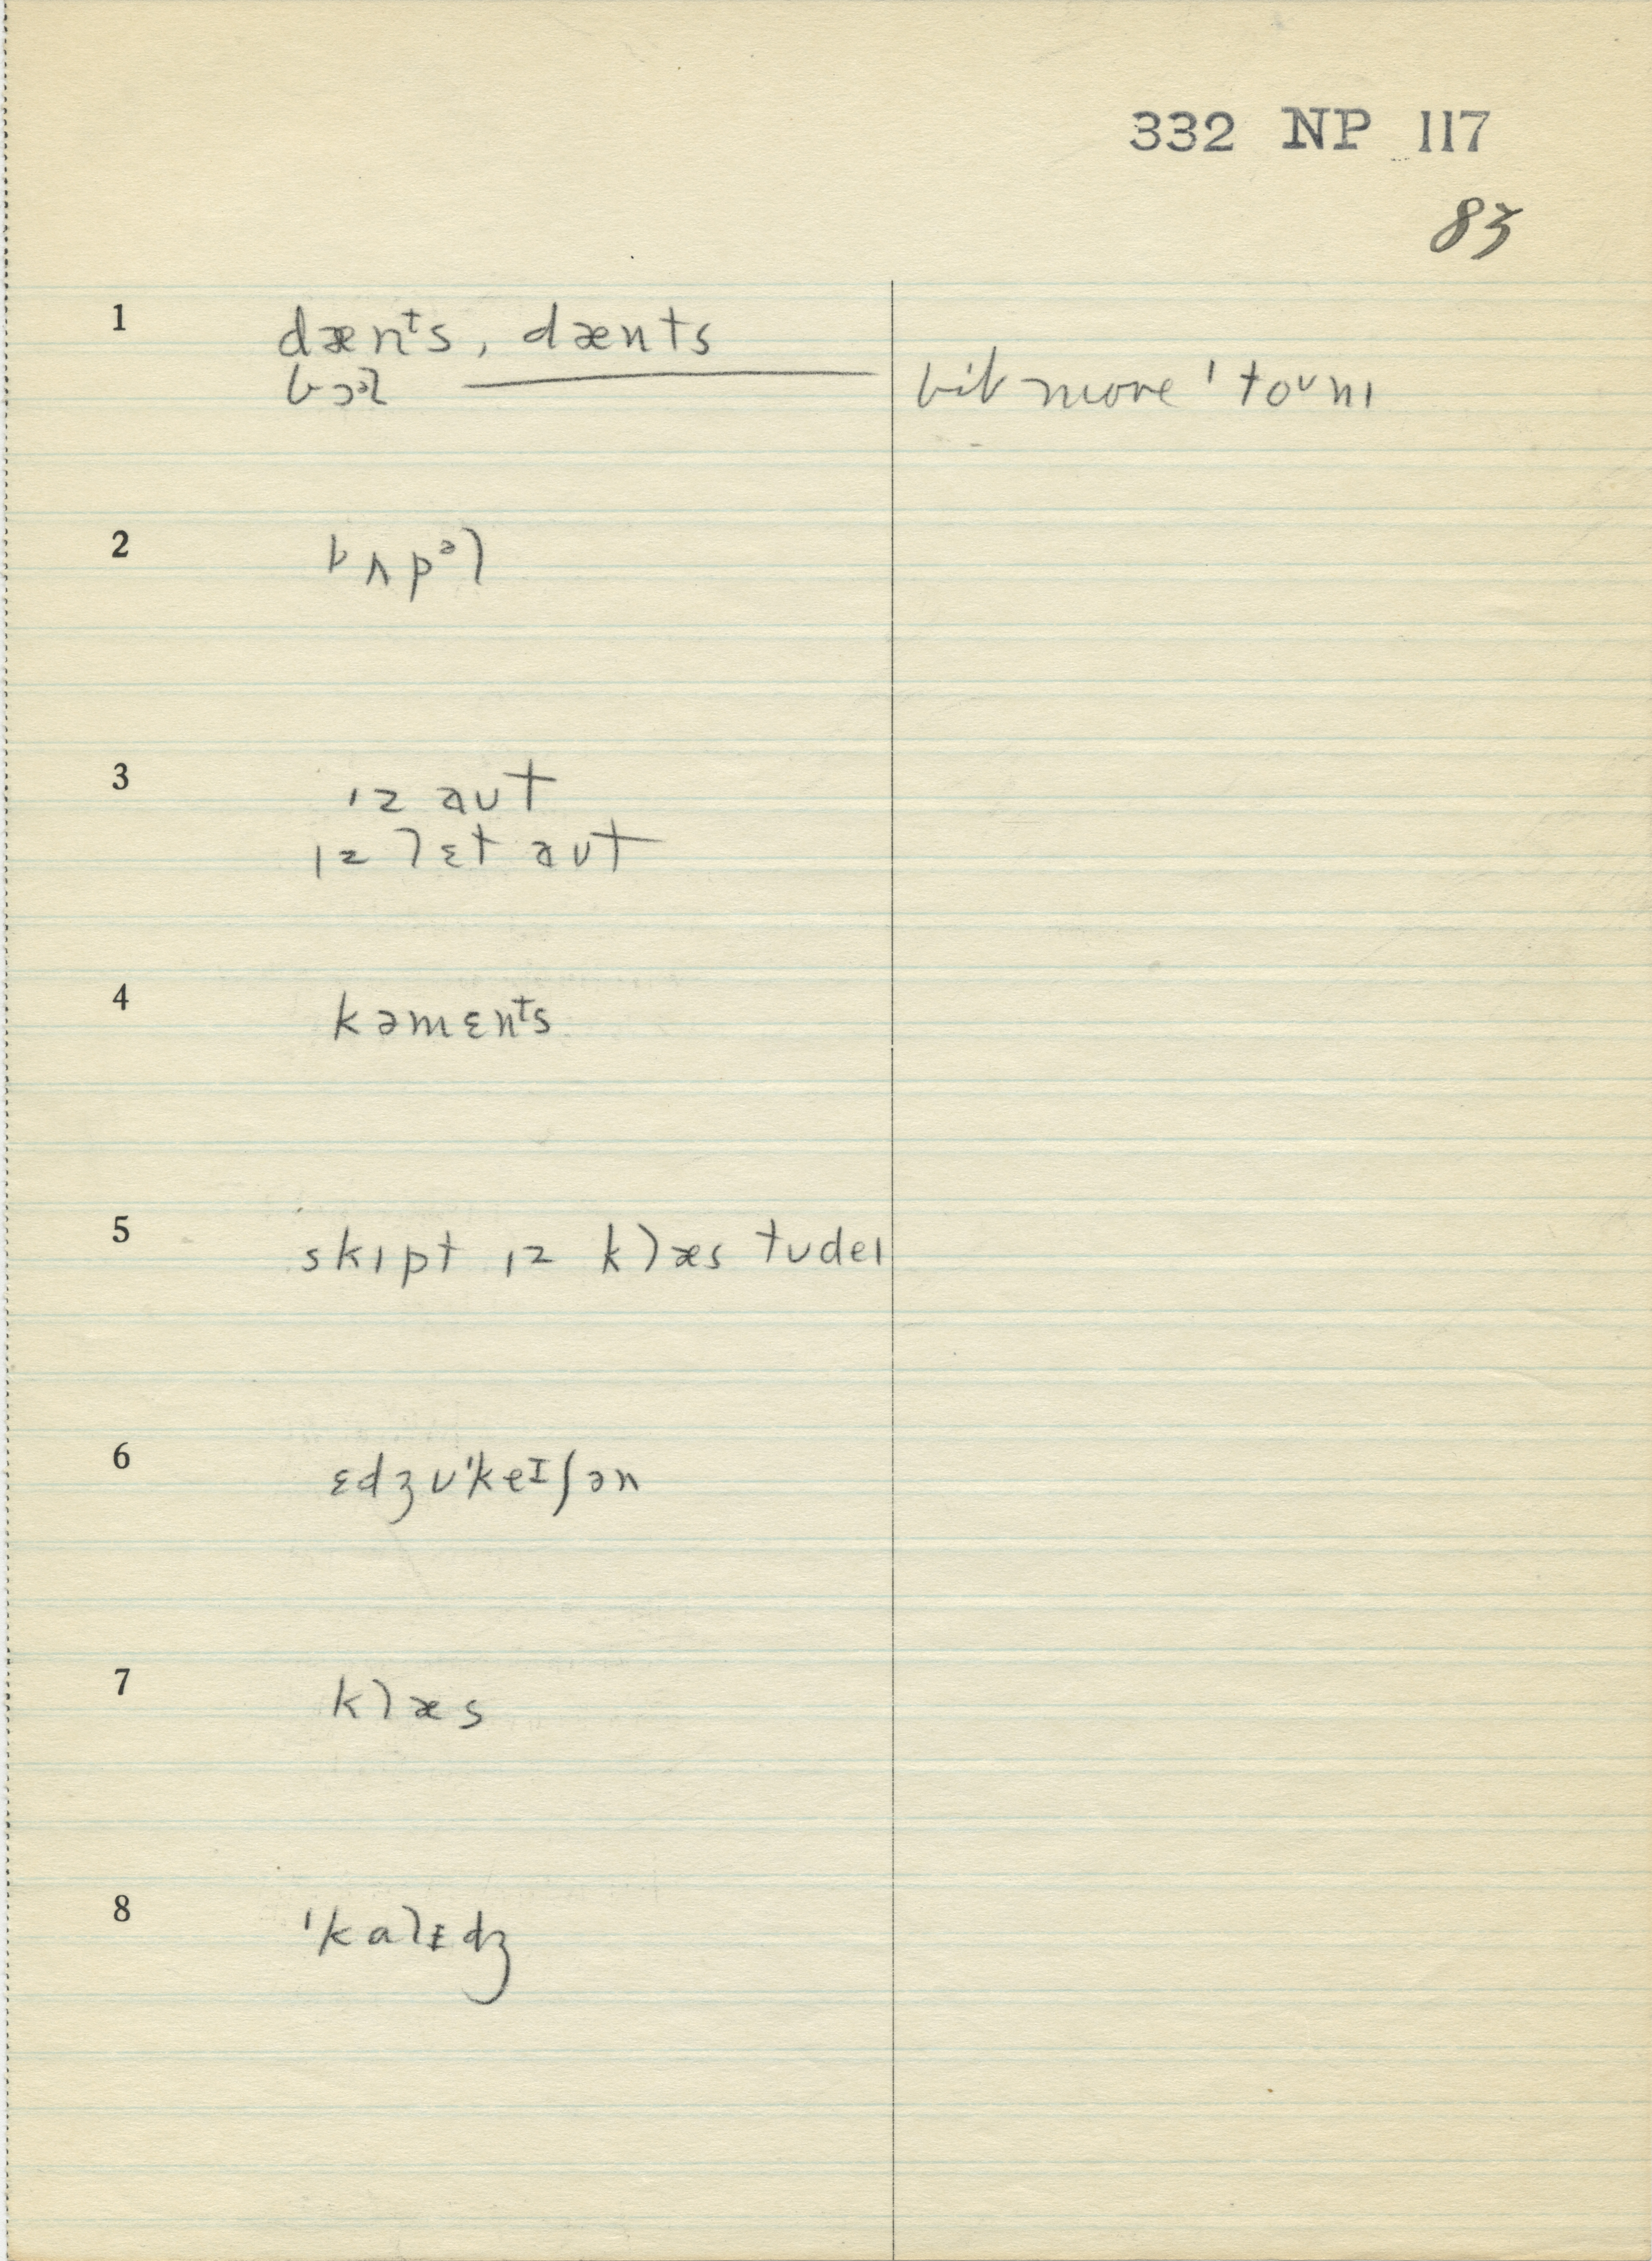 332 NP 117
83
1 dænᵗs, dænts
bɔᵊl bit more 'toᴜnɪ
2 bʌpᵊl
3 ɪz aᴜt
ɪz lɛt aᴜt
4 kəmɛnᵗs
5 skɪpt ɪz klæs tᴜdeɪ
6 ɛdʒᴜ'keɪʃən
7 klæs
8 'kalɪdʒ